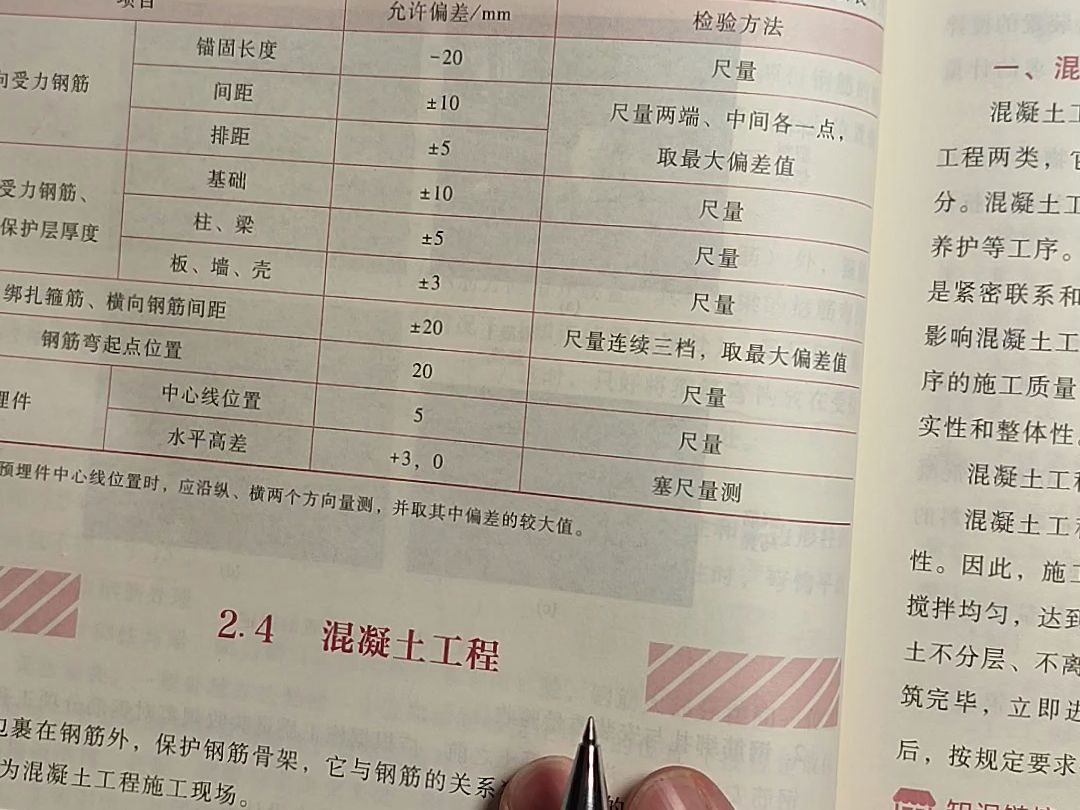 项目 允许偏差/mm 检验方法
向受力钢筋 锚固长度 -20 尺量
间距 ±10 尺量两端、中间各一点，
排距 ±5 取最大偏差值
受力钢筋、 基础 ±10 尺量
保护层厚度 柱、梁 ±5 尺量
板、墙、壳 ±3 尺量
绑扎箍筋、横向钢筋间距 ±20 尺量连续三档，取最大偏差值
钢筋弯起点位置 20 尺量
埋件 中心线位置 5 尺量
水平高差 +3，0 塞尺量测
预埋件中心线位置时，应沿纵、横两个方向量测，并取其中偏差的较大值。
2.4 混凝土工程
包裹在钢筋外，保护钢筋骨架，它与钢筋的关系
为混凝土工程施工现场。
一、混
混凝土工
工程两类，它
分。混凝土工
养护等工序。
是紧密联系和
影响混凝土工
序的施工质量
实性和整体性。
混凝土工程
混凝土工程
性。因此，施工
搅拌均匀，达到
土不分层、不离
筑完毕，立即进
后，按规定要求
知识链接